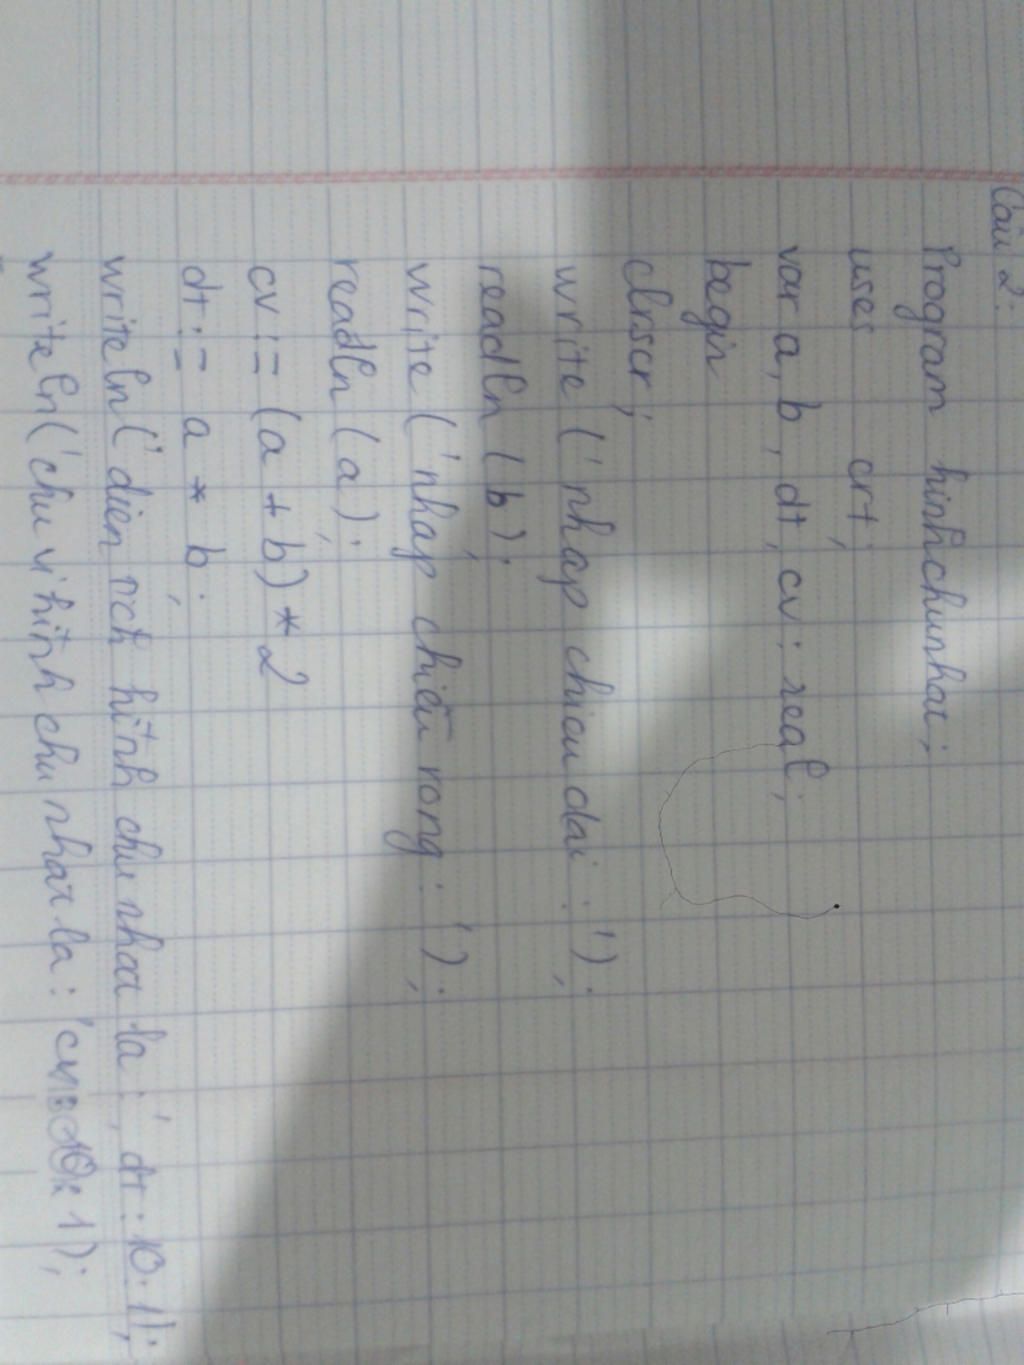 Câu 2:
Program hinhchunhat;
uses crt;
var a, b, dt, cv: real;
begin
clrscr;
write ('nhap chieu dai : ');
readln (b);
write ('nhap chieu rong : ');
readln (a);
cv := (a + b) * 2
dt := a * b;
writeln ('dien tich hinh chu nhat la : ', dt : 10 : 1);
writeln ('chu vi hinh chu nhat la : 'cv : 10 : 1);